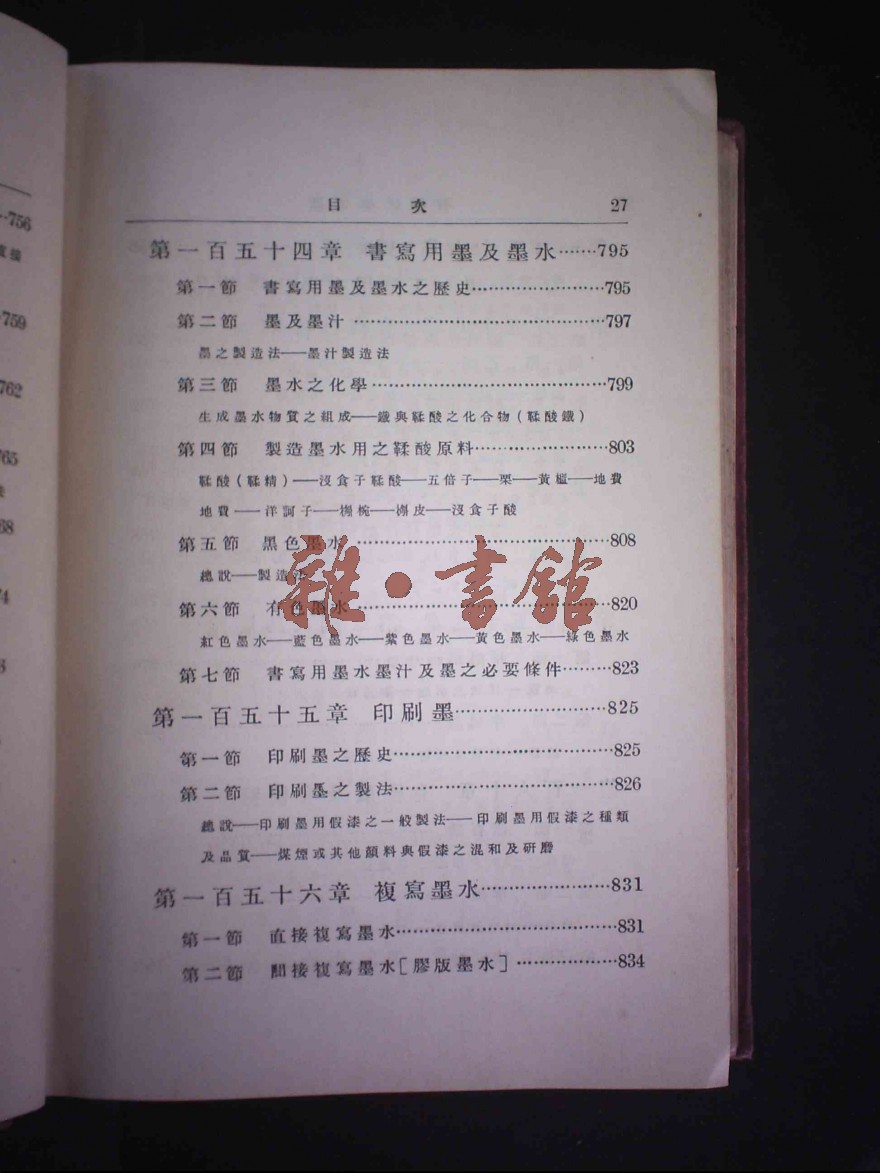 目 次 27
第一百五十四章 書寫用墨及墨水……795
第一節 書寫用墨及墨水之歷史……795
第二節 墨及墨汁……797
墨之製造法——墨汁製造法
第三節 墨水之化學……799
生成墨水物質之組成——鐵與鞣酸之化合物(鞣酸鐵)
第四節 製造墨水用之鞣酸原料……803
鞣酸(鞣精)——沒食子鞣酸——五倍子——栗——黃櫨——地費
地費——洋訶子——槲椀——槲皮——沒食子酸
第五節 黑色墨水……808
總說——製造法
第六節 有色墨水……820
紅色墨水——藍色墨水——紫色墨水——黃色墨水——綠色墨水
第七節 書寫用墨水墨汁及墨之必要條件……823
第一百五十五章 印刷墨……825
第一節 印刷墨之歷史……825
第二節 印刷墨之製法……826
總說——印刷墨用假漆之一般製法——印刷墨用假漆之種類
及品質——煤煙或其他顏料與假漆之混和及研磨
第一百五十六章 複寫墨水……831
第一節 直接複寫墨水……831
第二節 間接複寫墨水[膠版墨水]……834
雜·書館
756
759
762
765